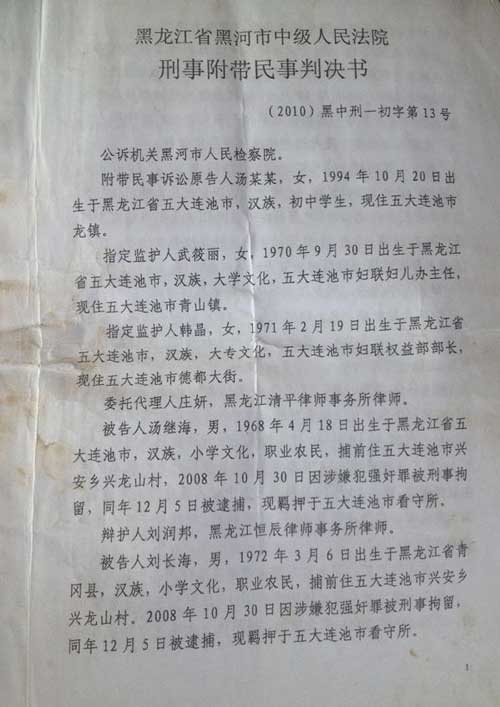 黑龙江省黑河市中级人民法院
刑事附带民事判决书
（2010）黑中刑一初字第 13 号
公诉机关黑河市人民检察院。
附带民事诉讼原告人汤某某，女，1994 年 10 月 20 日出
生于黑龙江省五大连池市，汉族，初中学生，现住五大连池市
龙镇。
指定监护人武筱丽，女，1970 年 9 月 30 日出生于黑龙江
省五大连池市，汉族，大学文化，五大连池市妇联妇儿办主任，
现住五大连池市青山镇。
指定监护人韩晶，女，1971 年 2 月 19 日出生于黑龙江省
五大连池市，汉族，大专文化，五大连池市妇联权益部部长，
现住五大连池市德都大街。
委托代理人庄妍，黑龙江清平律师事务所律师。
被告人汤继海，男，1968 年 4 月 18 日出生于黑龙江省五
大连池市，汉族，小学文化，职业农民，捕前住五大连池市兴
安乡兴龙山村，2008 年 10 月 30 日因涉嫌犯强奸罪被刑事拘
留，同年 12 月 5 日被逮捕，现羁押于五大连池市看守所。
辩护人刘润邦，黑龙江恒辰律师事务所律师。
被告人刘长海，男，1972 年 3 月 6 日出生于黑龙江省青
冈县，汉族，小学文化，职业农民，捕前住五大连池市兴安乡
兴龙山村。2008 年 10 月 30 日因涉嫌犯强奸罪被刑事拘留，
同年 12 月 5 日被逮捕，现羁押于五大连池市看守所。
1